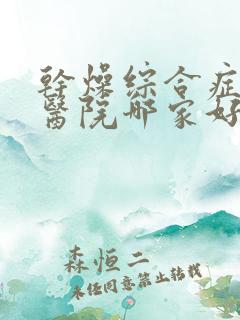 幹燥綜合症
醫院哪家好
森恒二
未经同意禁止转载